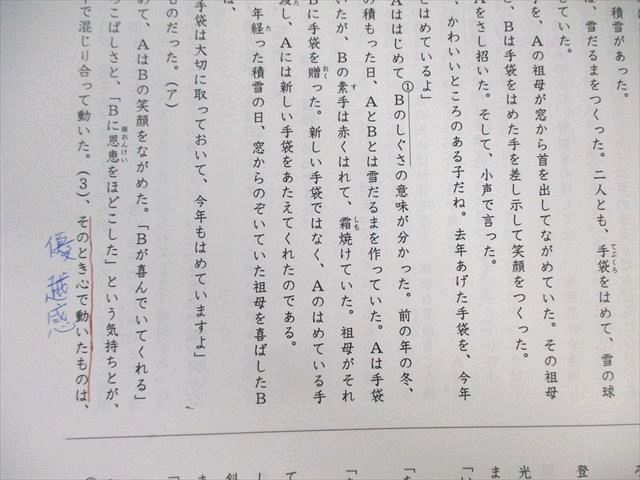 積雪があった。
は、雪だるまをつくった。二人とも、手袋をはめて、雪の球
てぶくろ
していた。
手を、Aの祖母が窓から首を出してながめていた。その祖母
と、Bは手袋をはめた手を差し示して笑顔をつくった。
Aをさし招いた。そして、小声で言った。
、かわいいところのある子だね。去年あげた手袋を、今年
とはめているよ」
Aははじめて①Bのしぐさの意味が分かった。前の年の冬、
の積もった日、AとBとは雪だるまを作っていた。Aは手袋
いたが、Bの素手は赤くはれて、霜焼けていた。祖母がそれ
す
しも
Bに手袋を贈った。新しい手袋ではなく、Aのはめている手
おく
渡し、Aには新しい手袋をあたえてくれたのである。
年経った積雪の日、窓からのぞいていた祖母を喜ばしたB
た
は、
手袋は大切に取っておいて、今年もはめていますよ」
ものだった。(ア)
めて、AはBの笑顔をながめた。「Bが喜んでいてくれる」
こばしさと、「Bに恩恵をほどこした」という気持ちとが、
おんけい
で混じり合って動いた。(3)、そのとき心で動いたものは、
優越感